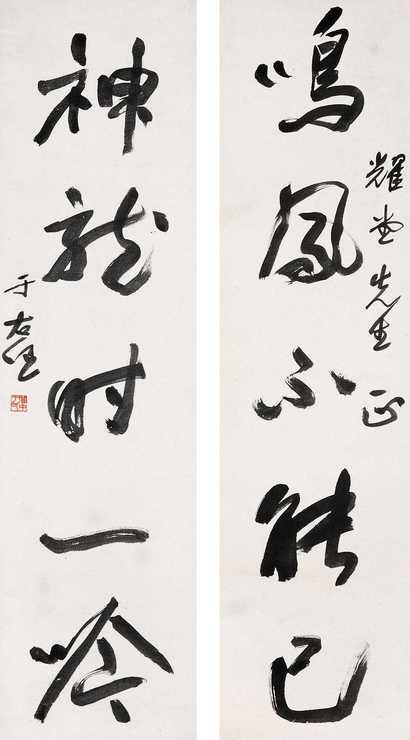 鳴鳳不能已
耀堂先生正
神龍时一吟
于右任